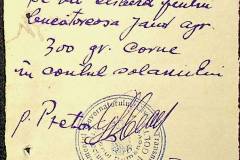 se va elibera pentru
lucrătoarea Jand agr.
300 gr. carne
în contul salariului
p. Pretor